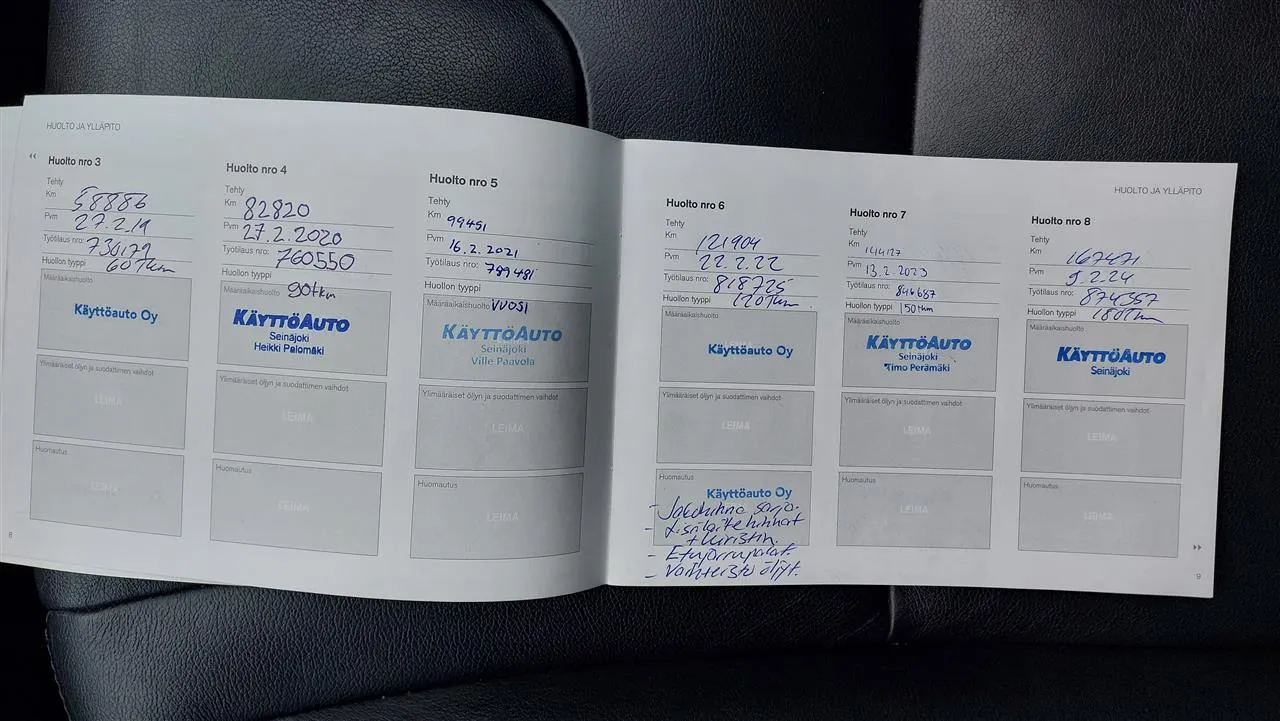 HUOLTO JA YLLÄPITO
Huolto nro 3
Tehty
Km 58886
Pvm 27.2.19
Työtilaus nro: 730179
Huollon tyyppi 60Tkm
Määräaikaishuolto
Käyttöauto Oy
Ylimääräiset öljyn ja suodattimen vaihdot
LEIMA
Huomautus
LEIMA
Huolto nro 4
Tehty
Km 82820
Pvm 27.2.2020
Työtilaus nro: 760550
Huollon tyyppi
Määräaikaishuolto 90tkm
KÄYTTÖAUTO
Seinäjoki
Heikki Palomäki
Ylimääräiset öljyn ja suodattimen vaihdot
LEIMA
Huomautus
LEIMA
Huolto nro 5
Tehty
Km 99451
Pvm 16.2.2021
Työtilaus nro: 789481
Huollon tyyppi
Määräaikaishuolto VUOSI
KÄYTTÖAUTO
Seinäjoki
Ville Paavola
Ylimääräiset öljyn ja suodattimen vaihdot
LEIMA
Huomautus
LEIMA
8
HUOLTO JA YLLÄPITO
Huolto nro 6
Tehty
Km 121904
Pvm 22.2.22
Työtilaus nro: 818725
Huollon tyyppi 120Tkm
Määräaikaishuolto
Käyttöauto Oy
Ylimääräiset öljyn ja suodattimen vaihdot
LEIMA
Huomautus
Käyttöauto Oy
- Jakohihna sarja.
- Lisälaitehihnat
+ kiristin.
- Etujarrupalat.
- Vaihteisto öljyt.
Huolto nro 7
Tehty
Km 144127
Pvm 13.2.2023
Työtilaus nro: 846687
Huollon tyyppi 150tkm
Määräaikaishuolto
KÄYTTÖAUTO
Seinäjoki
Timo Perämäki
Ylimääräiset öljyn ja suodattimen vaihdot
LEIMA
Huomautus
LEIMA
Huolto nro 8
Tehty
Km 167471
Pvm 9.2.24
Työtilaus nro: 874357
Huollon tyyppi 180Tkm
Määräaikaishuolto
KÄYTTÖAUTO
Seinäjoki
Ylimääräiset öljyn ja suodattimen vaihdot
LEIMA
Huomautus
LEIMA
9